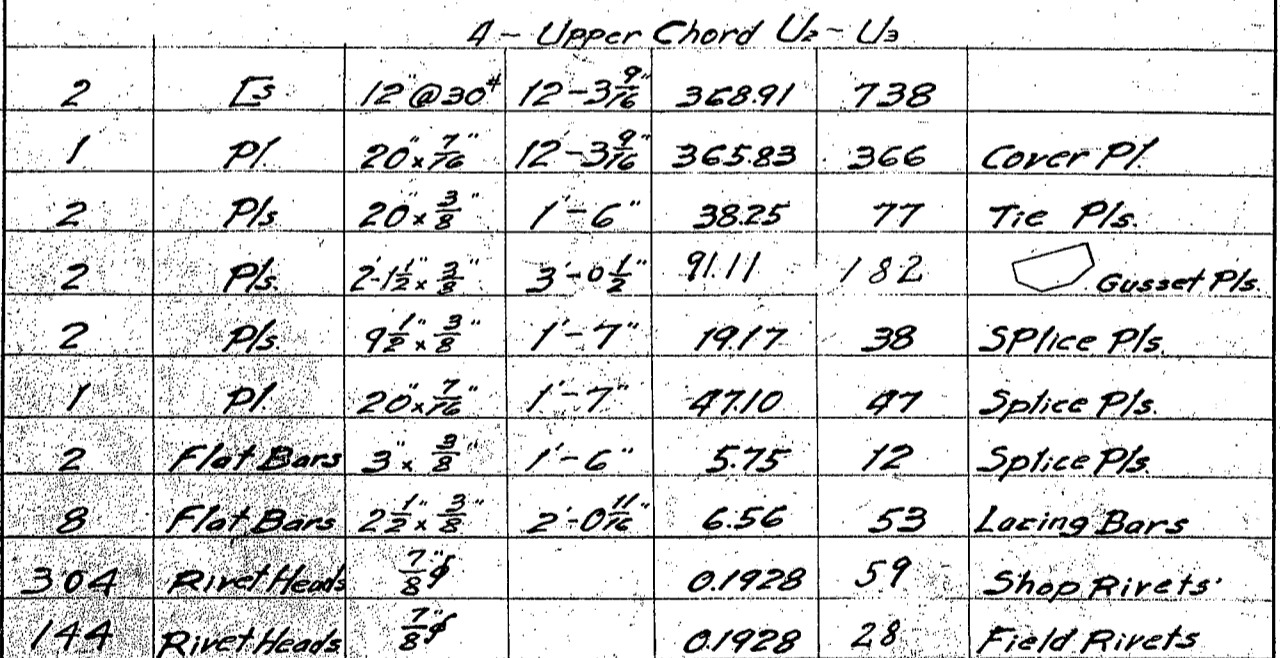 4 - Upper Chord U₂ - U₃
2 [s 12"@30# 12-3 9/16" 368.91 738
1 Pl. 20"x7/16" 12'-3 9/16" 365.83 366 Cover Pl.
2 Pls. 20"x3/8" 1'-6" 38.25 77 Tie Pls.
2 Pls. 2'-1 1/2"x3/8" 3'-0 1/2" 91.11 182 Gusset Pls.
2 Pls. 9 1/2"x3/8" 1'-7" 19.17 38 SPlice Pls.
1 Pl. 20"x7/16" 1'-7" 47.10 47 Splice Pls.
2 Flat Bars 3"x3/8" 1'-6" 5.75 12 Splice Pls.
8 Flat Bars 2 1/2"x3/8" 2'-0 11/16" 6.56 53 Lacing Bars
304 Rivet Heads 7/8"ϕ 0.1928 59 Shop Rivets
144 Rivet Heads 7/8"ϕ 0.1928 28 Field Rivets